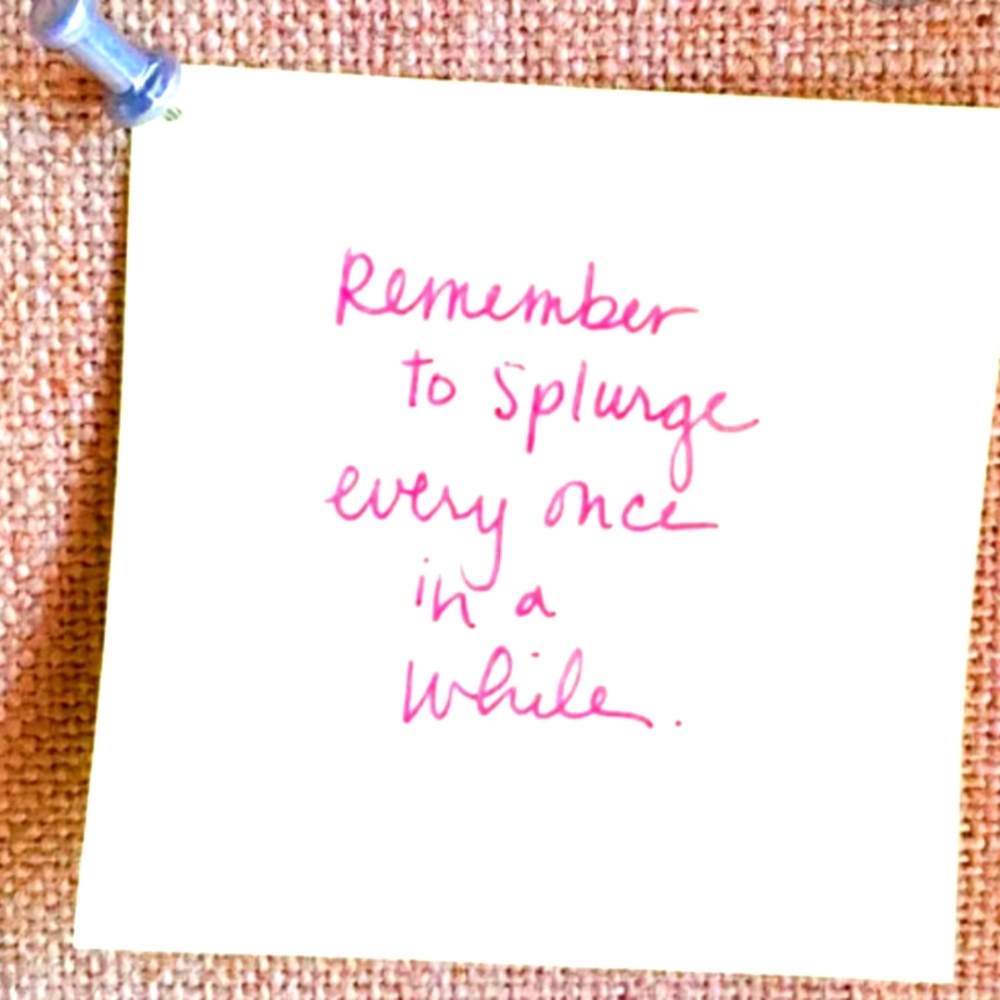 Remember
to splurge
every once
in a
while.